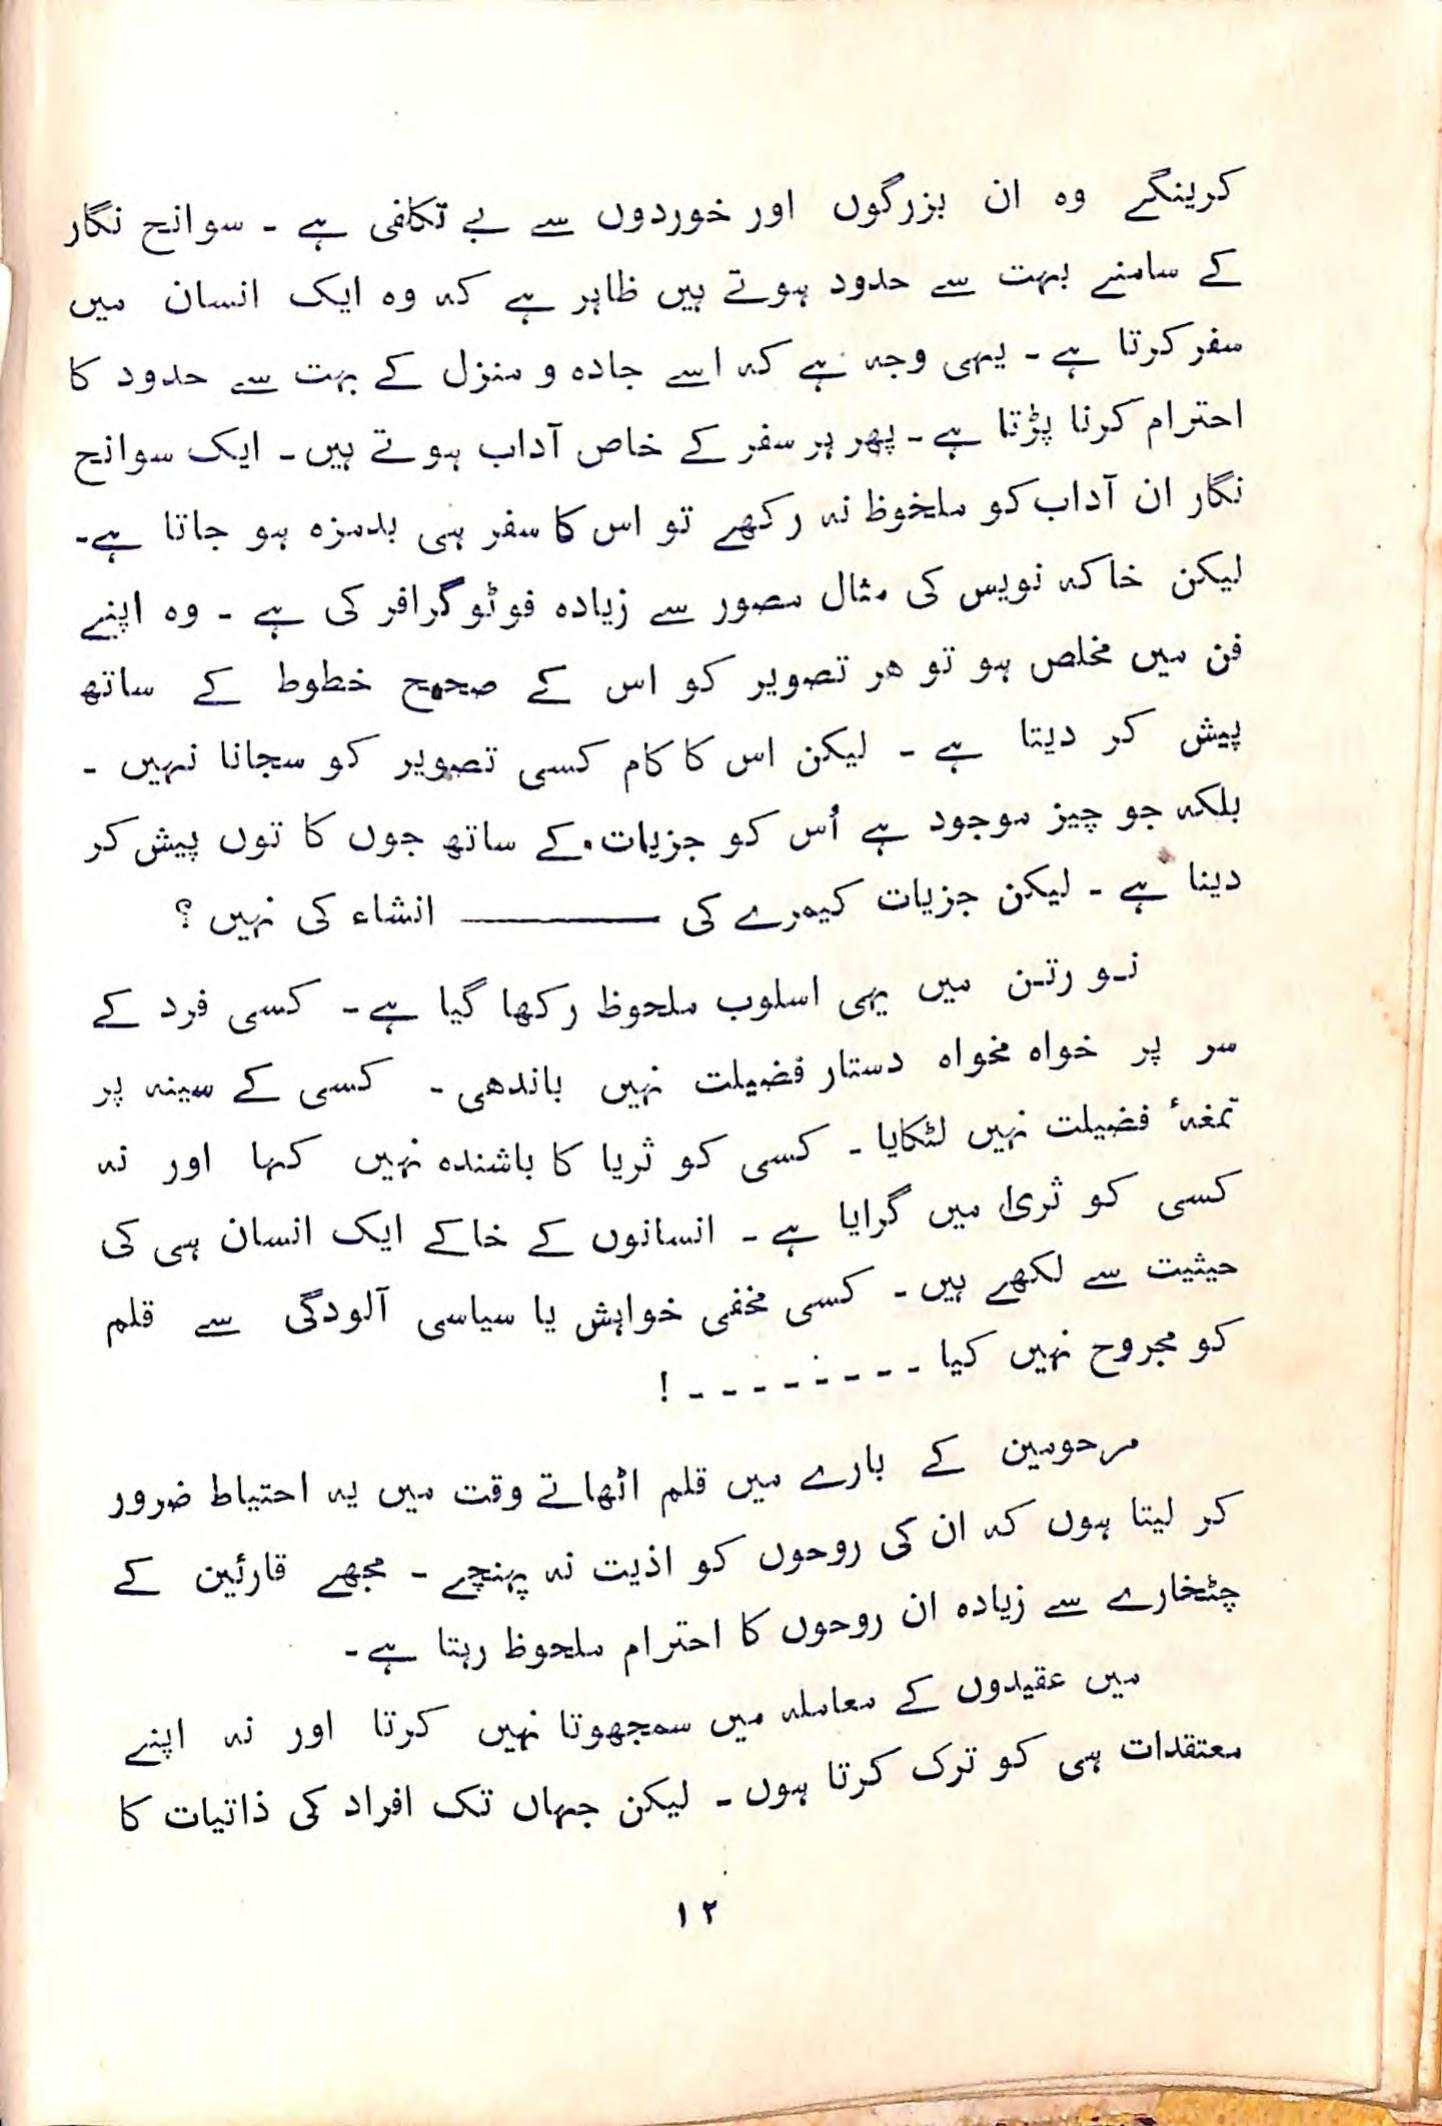 کرینگے وہ ان بزرگوں اور خوردوں سے بے تکافی ہے ۔ سوانح نگار
کے سامنے بہت سے حدود ہوتے ہیں ظاہر ہے کہ وہ ایک انسان میں
سفر کرتا ہے ۔ یہی وجہ ہے کہ اسے جادہ و منزل کے بہت سے حدود کا
احترام کرنا پڑتا ہے ۔ پھر ہر سفر کے خاص آداب ہوتے ہیں ۔ ایک سوانح
نگار ان آداب کو ملخوظ نہ رکھے تو اس کا سفر ہی بدمزہ ہو جاتا ہے ۔
لیکن خاکہ نویس کی مثال مصور سے زیادہ فوٹو گرافر کی ہے ۔ وہ اپنے
فن میں مخلص ہو تو ھر تصویر کو اس کے صحیح خطوط کے ساتھ
پیش کر دیتا ہے ۔ لیکن اس کا کام کسی تصویر کو سجانا نہیں ۔
بلکہ جو چیز موجود ہے اُس کو جزیات کے ساتھ جوں کا توں پیش کر
دینا ہے ۔ لیکن جزیات کیمرے کی ——— انشاء کی نہیں ؟
نو رتن میں یہی اسلوب ملحوظ رکھا گیا ہے ۔ کسی فرد کے
سر پر خواہ مخواہ دستار فضیلت نہیں باندھی ۔ کسی کے سینہ پر
تمغہٴ فضیلت نہیں لٹکایا ۔ کسی کو ثریا کا باشندہ نہیں کہا اور نہ
کسی کو ثریٰ میں گرایا ہے ۔ انسانوں کے خاکے ایک انسان ہی کی
حیثیت سے لکھے ہیں ۔ کسی مخفی خواہش یا سیاسی آلودگی سے قلم
کو مجروح نہیں کیا - - - - - - - - !
مرحومین کے بارے میں قلم اٹھاتے وقت میں یہ احتیاط ضرور
کر لیتا ہوں کہ ان کی روحوں کو اذیت نہ پہنچے ۔ مجھے قارئین کے
چٹخارے سے زیادہ ان روحوں کا احترام ملحوظ رہتا ہے ۔
میں عقیدوں کے معاملہ میں سمجھوتا نہیں کرتا اور نہ اپنے
معتقدات ہی کو ترک کرتا ہوں ۔ لیکن جہاں تک افراد کی ذاتیات کا
۱۲